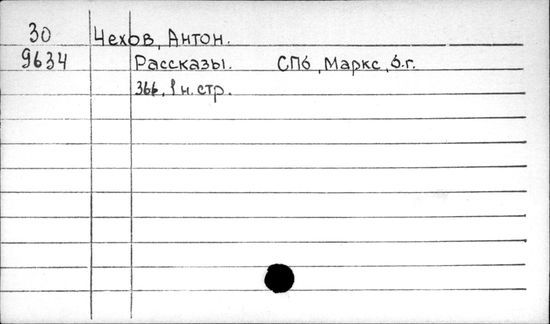 30 Чехов, Антон.
9634 Рассказы. СПб, Маркс, б.г.
366, 1 н. стр.